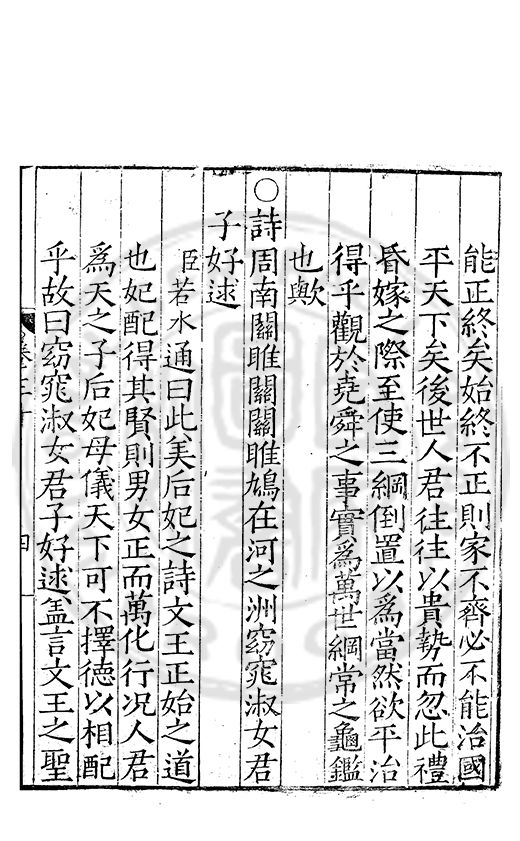 能正終矣始終不正則家不齊必不能治國
平天下矣後世人君往往以貴勢而忽此禮
昏嫁之際至使三綱倒置以為當然欲平治
得乎觀於堯舜之事實為萬世綱常之龜鑑
也歟
○詩周南關雎關關雎鳩在河之洲窈窕淑女君
子好逑
臣若水通曰此美后妃之詩文王正始之道
也妃配得其賢則男女正而萬化行况人君
為天之子后妃母儀天下可不擇德以相配
乎故曰窈窕淑女君子好逑盖言文王之聖
卷之二十
四